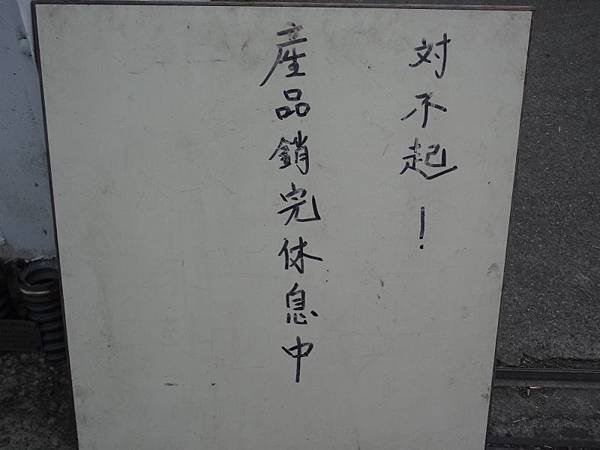 対不起！
產品銷完休息中